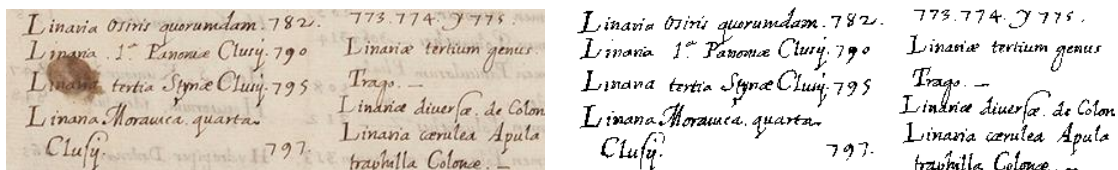 Linaria Osiris quorumdam. 782.
Linaria. 1ª Panoniæ Clusij. 790
Linaria tertia Styriæ Clusij. 795
Linaria Moravica. quarta
Clusij. 797.
773. 774. y 775.
Linariæ tertium genus
Trago. —
Linariæ diversæ. de Colon
Linaria cærulea Apula
traphilla Colonæ. —
Linaria Osiris quorumdam. 782.
Linaria 1ª Panoniæ Clusij. 790
Linaria tertia Styriæ Clusij. 795
Linaria Moravica. quarta
Clusij. 797.
773. 774. y 775.
Linariæ tertium genus
Trago. —
Linariæ diversæ. de Colon
Linaria cærulea Apula
traphilla Colonæ. —